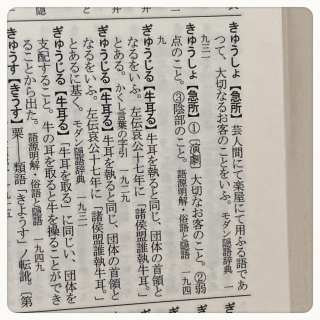 きゅうしょ【急所】 芸人間にて楽屋にて用ふる語であ
つて、大切なるお客のことをいふ。 モダン隠語辞典 一
九三一
きゅうしょ【急所】 ①(演劇)大切なお客のこと。②弱
点のこと。③陰部のこと。 語源明解・俗語と隠語 一九四
九
ぎゅうじる【牛耳る】 牛耳を執ると同じ、団体の首領と
なるをいふ。左伝哀公十七年に「諸侯盟誰執牛耳。」
とある。 かくし言葉の字引 一九二九
ぎゅうじる【牛耳る】 牛耳を執ると同じ、団体の首領と
なるをいふ。左伝哀公十七年に「諸侯盟誰執牛耳。」
とあるに基く。 モダン隠語辞典 一九三一
ぎゅうじる【牛耳る】 「牛耳を取る」に同じい、団体を
支配すること。牛の耳を取ると牛を操ることができ
ることから出た。 語源明解・俗語と隠語 一九四九
きゅうす【きうす】 栗 類語「きようす」ノ転訛。〔第